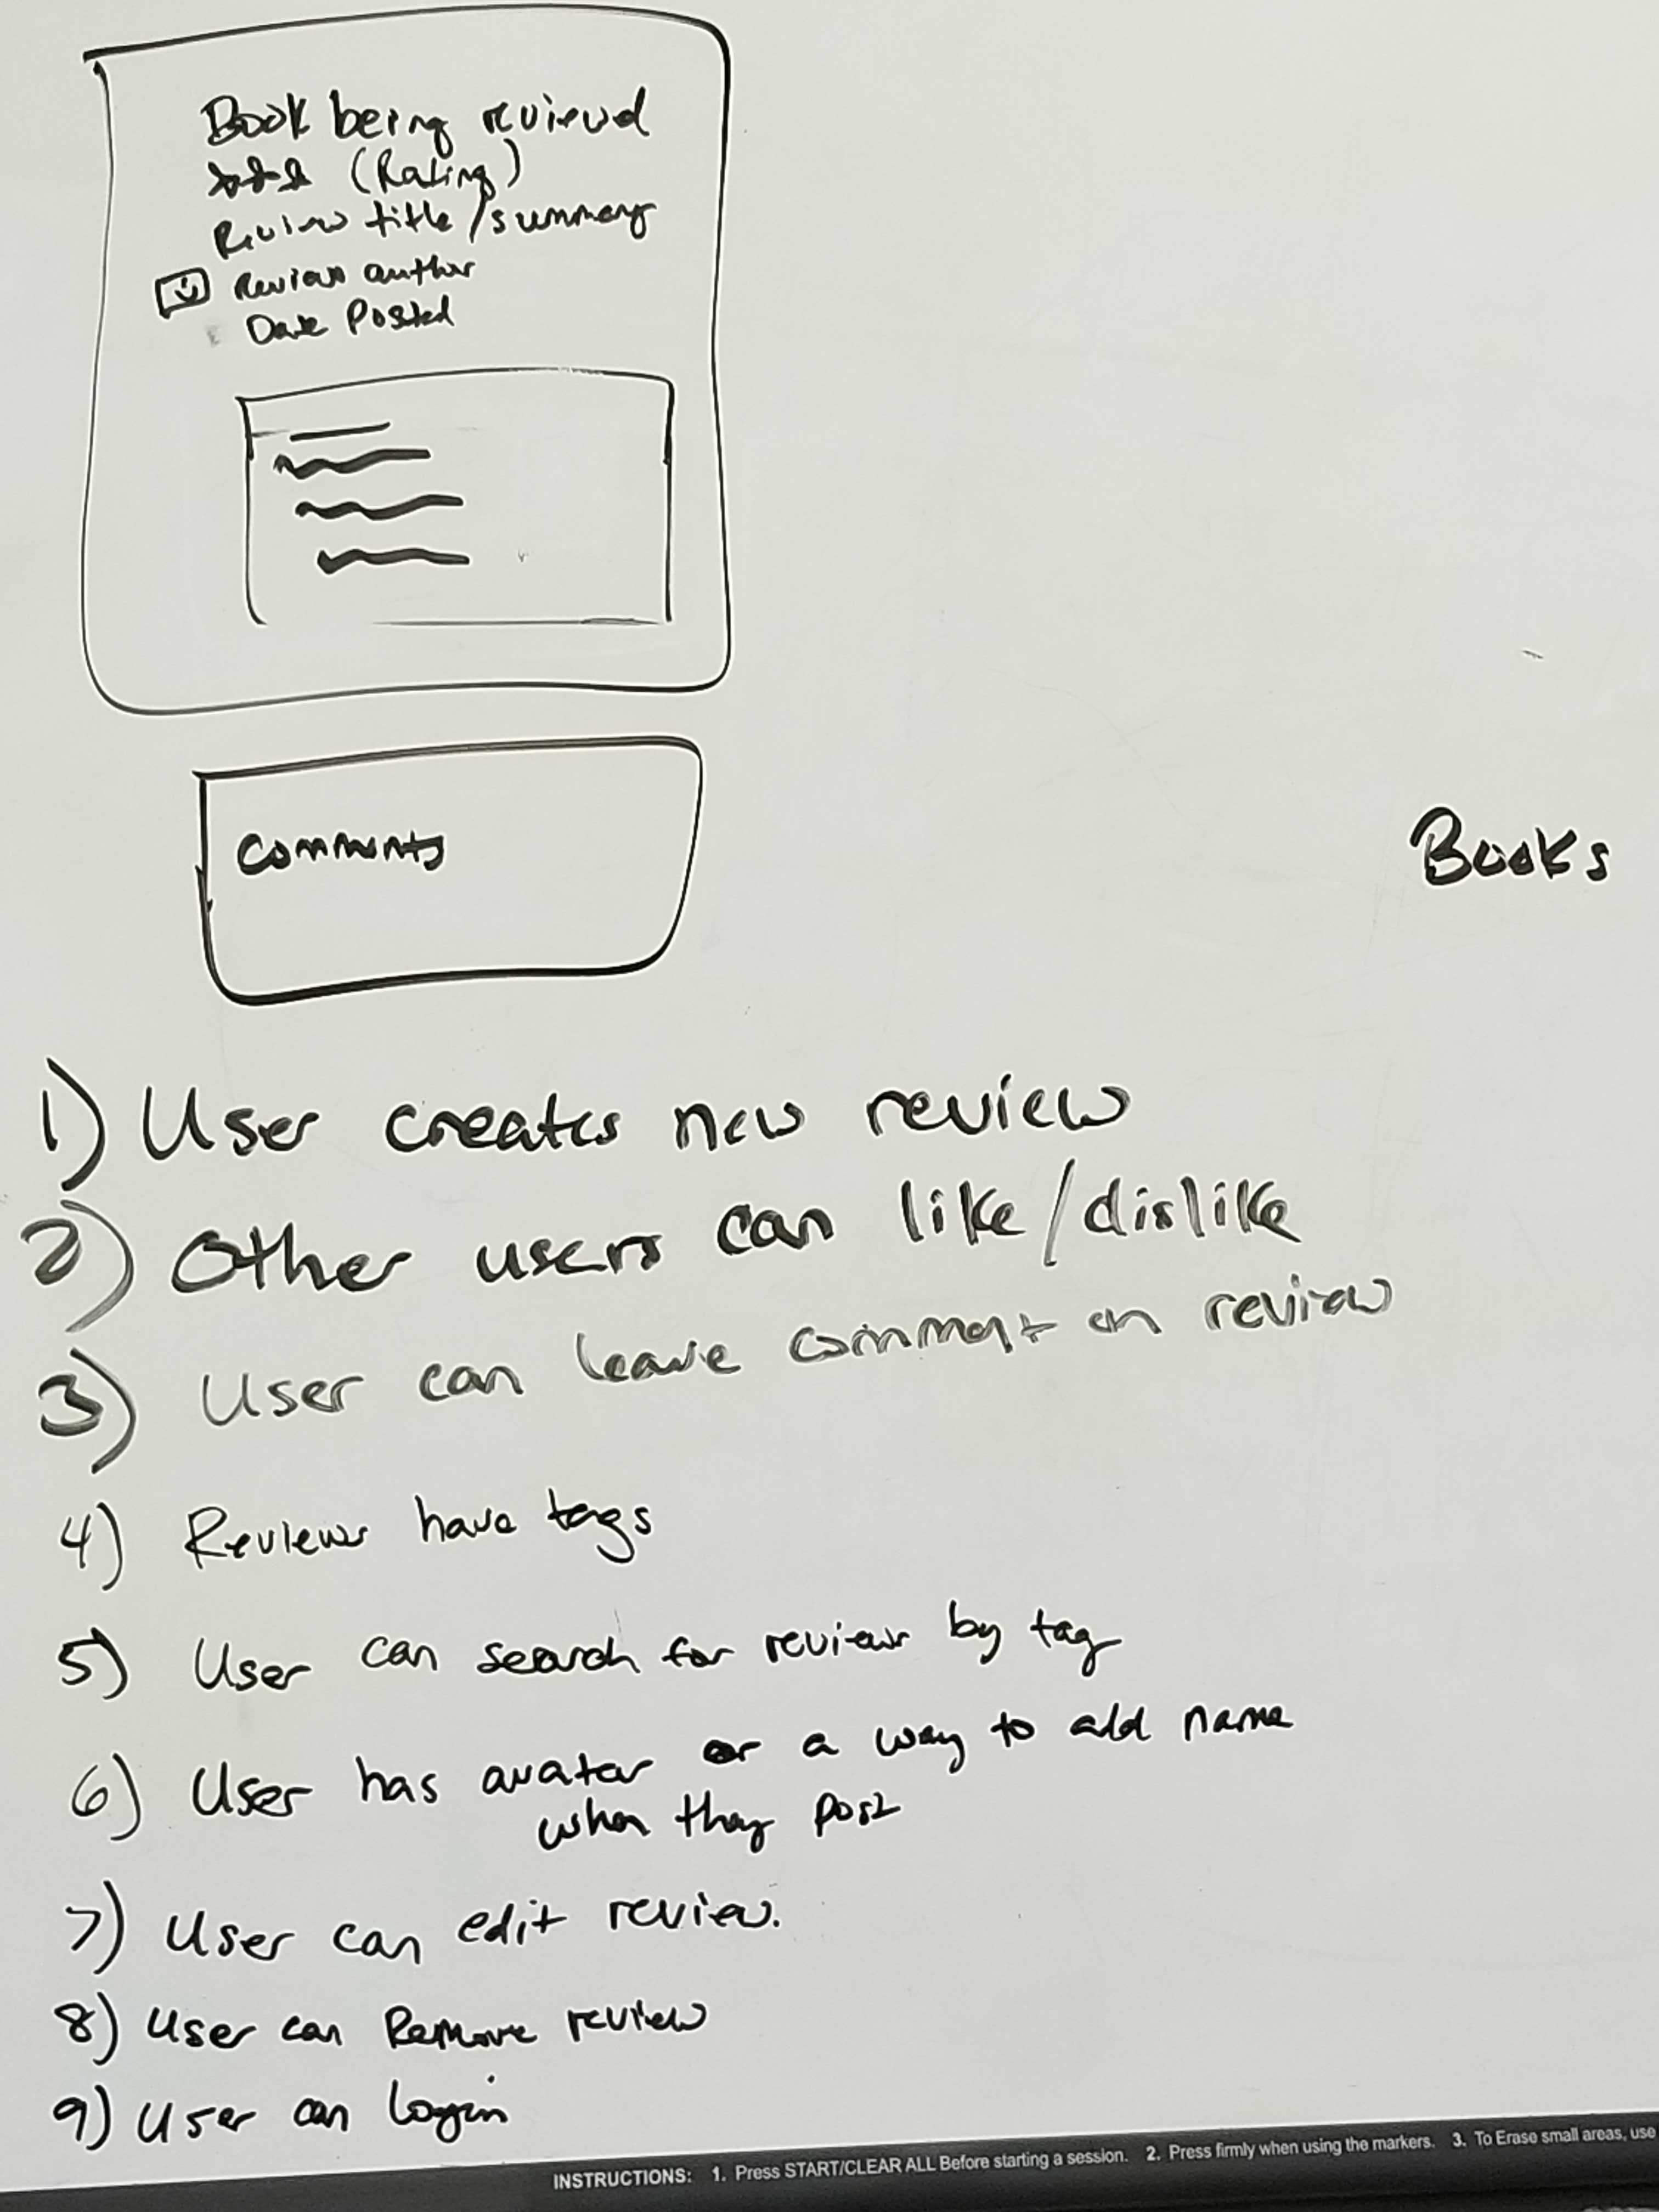 Book being reviewed
(Rating)
Review title/summary
Review author
Date Posted
Comments
Books
1) User creates new review
2) Other users can like/dislike
3) User can leave comment on review
4) Reviews have tags
5) User can search for review by tag
6) User has avatar or a way to add name
when they post
7) User can edit review.
8) User can Remove review
9) User can login
INSTRUCTIONS: 1. Press START/CLEAR ALL Before starting a session. 2. Press firmly when using the markers. 3. To Erase small areas, use